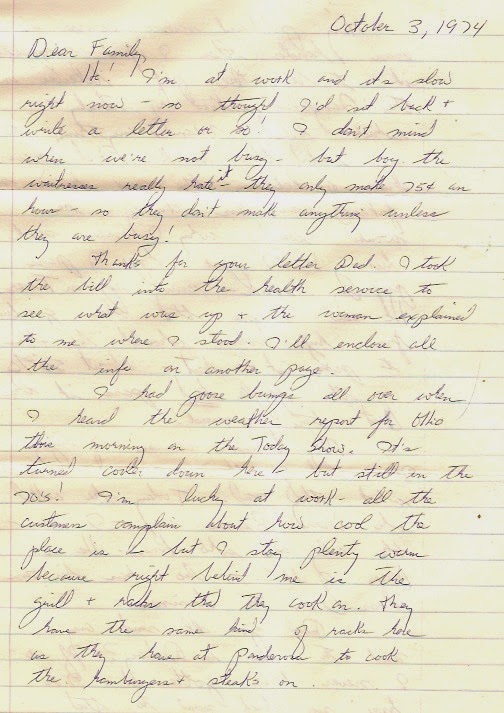 October 3, 1974
Dear Family,
Hi! I'm at work and its slow
right now - so thought I'd set back +
write a letter or so! I don't mind
when we're not busy - but boy the
waitresses really hate it - they only make 75¢ an
hour - so they don't make anything unless
they are busy!
Thanks for your letter Dad. I took
the bill into the health service to
see what was up + the woman explained
to me where I stood. I'll enclose all
the info on another page.
I had goose bumps all over when
I heard the weather report for Ohio
this morning on the Today Show. It's
turned cooler down here - but still in the
70's! I'm lucky at work - all the
customers complain about how cool the
place is - but I stay plenty warm
because right behind me is the
grill + racks that they cook on. They
have the same kind of racks here
as they have at ponderosa to cook
the hamburgers + steaks on.